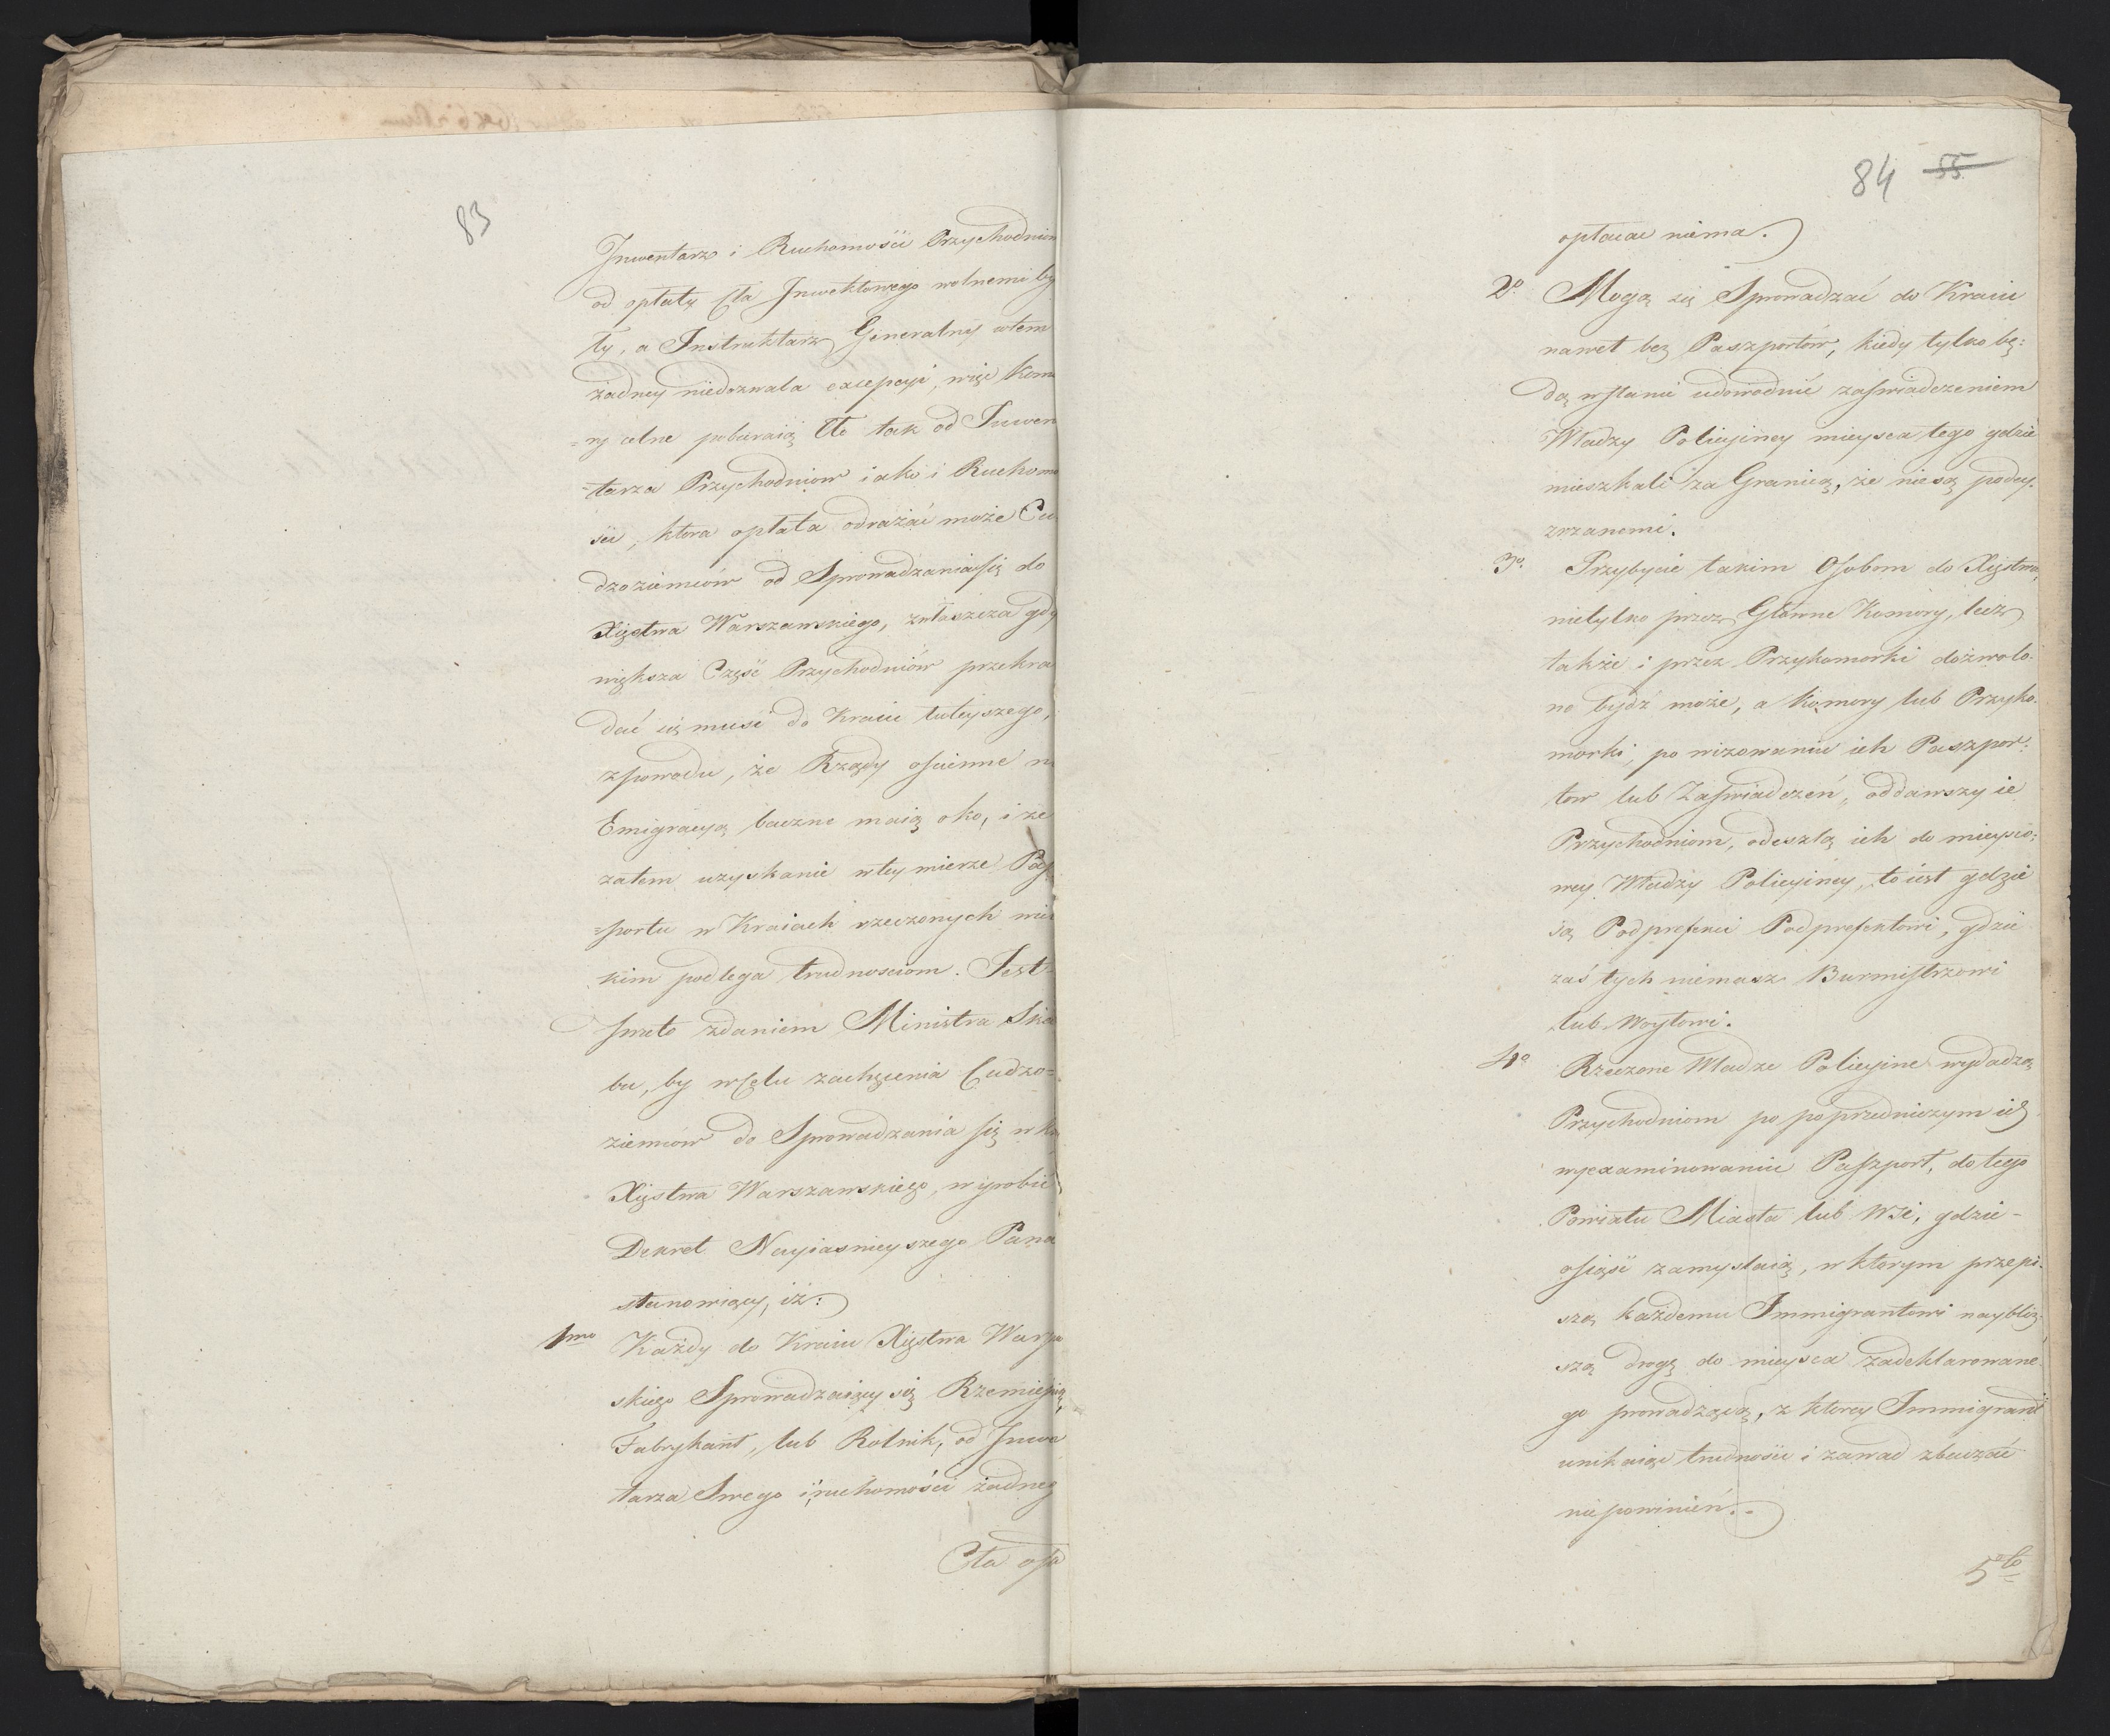 83
Inwentarz i Ruchomości Przychodnio
od opłaty Cła Inwektowego wolnemi by
ły, a Instruktarz Generalny w tem
żadney niedozwala excepcyi, więc Komo
=ry celne pobieraią Cło tak od Inwen
=tarza Przychodniow iako i Ruchomo
ści, ktora opłata odrażać może Cu
dzoziemców od Sprowadzania się do
Xięstwa Warszawskiego, zwłaszcza gdy
większa Część Przychodniów przekra
dać się musi do Kraiu tuteyszego,
z powodu, że Rządy ościenne n
Emigracyą baczne maią oko, i że
zatem uzyskanie w tey mierze Pasz
=portu w Kraiach rzeczonych wiel
kim podlega trudnosciom. Jest
przeto zdaniem Ministra Skar
bu, by w Celu zachęcenia Cudzo=
ziemców do Sprowadzania się w kray
Xięstwa Warszawskiego, wyrobić
Dekret Nayiasnieyszego Pana
stanowiący, iż:
1mo Każdy do Kraiu Xięstwa Warsza
skiego Sprowadzaiący się Rzemieśnik,
Fabrykant, lub Rolnik, od Inwe
tarza Swego i ruchomości żadneg
Cła opł
84 55
opłacać niema.
2o Mogą się Sprowadzać do Kraiu
nawet bez Paszportów, kiedy tylko bę:
dą w stanie udowodnić zaświadczeniem
Władzy Policyiney mieysca tego gdzie
mieszkali za Granicą, że nie są podey:
zrzanemi.
3o Przybycie takim Osobom do Xięstwa,
nietylko przez Główne Komory, lecz
także i przez Przykomorki dozwolo-
no bydź może, a Komory lub Przyko-
morki, po wizowaniu ich Paszpor:
tow lub Zaświadczeń, oddawszy ie
Przychodniom, odeszlą ich do mieysco:
wey Władzy Policyiney, to iest gdzie
są Podprefekci Podprefektowi, gdzie
zaś tych niemasz Burmistrzowi
lub Woytowi.
4o Rzeczone Władze Policyine wydadzą
Przychodniom po poprzedniczym ich
wyexaminowaniu Paszport, do tego
Powiatu Miasta lub Wsi, gdzie -
osieść zamyslaią, w ktorym przepi-
szą każdemu Immigrantowi naybliż-
szą drogę do mieysca zadeklarowane
go prowadzącą, z ktorey Immigrant
unikaiąc trudności i zawad zbaczać
nie powinień.
5to